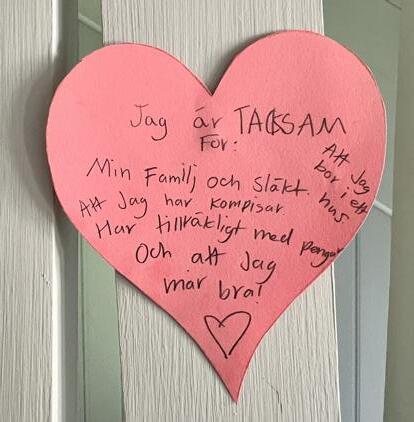 Jag är TACKSAM
För:
Min Familj och släkt.
Att Jag har kompisar.
Har tillräkligt med pengar
Och att Jag
mår bra!
Att Jag
bor i ett
hus